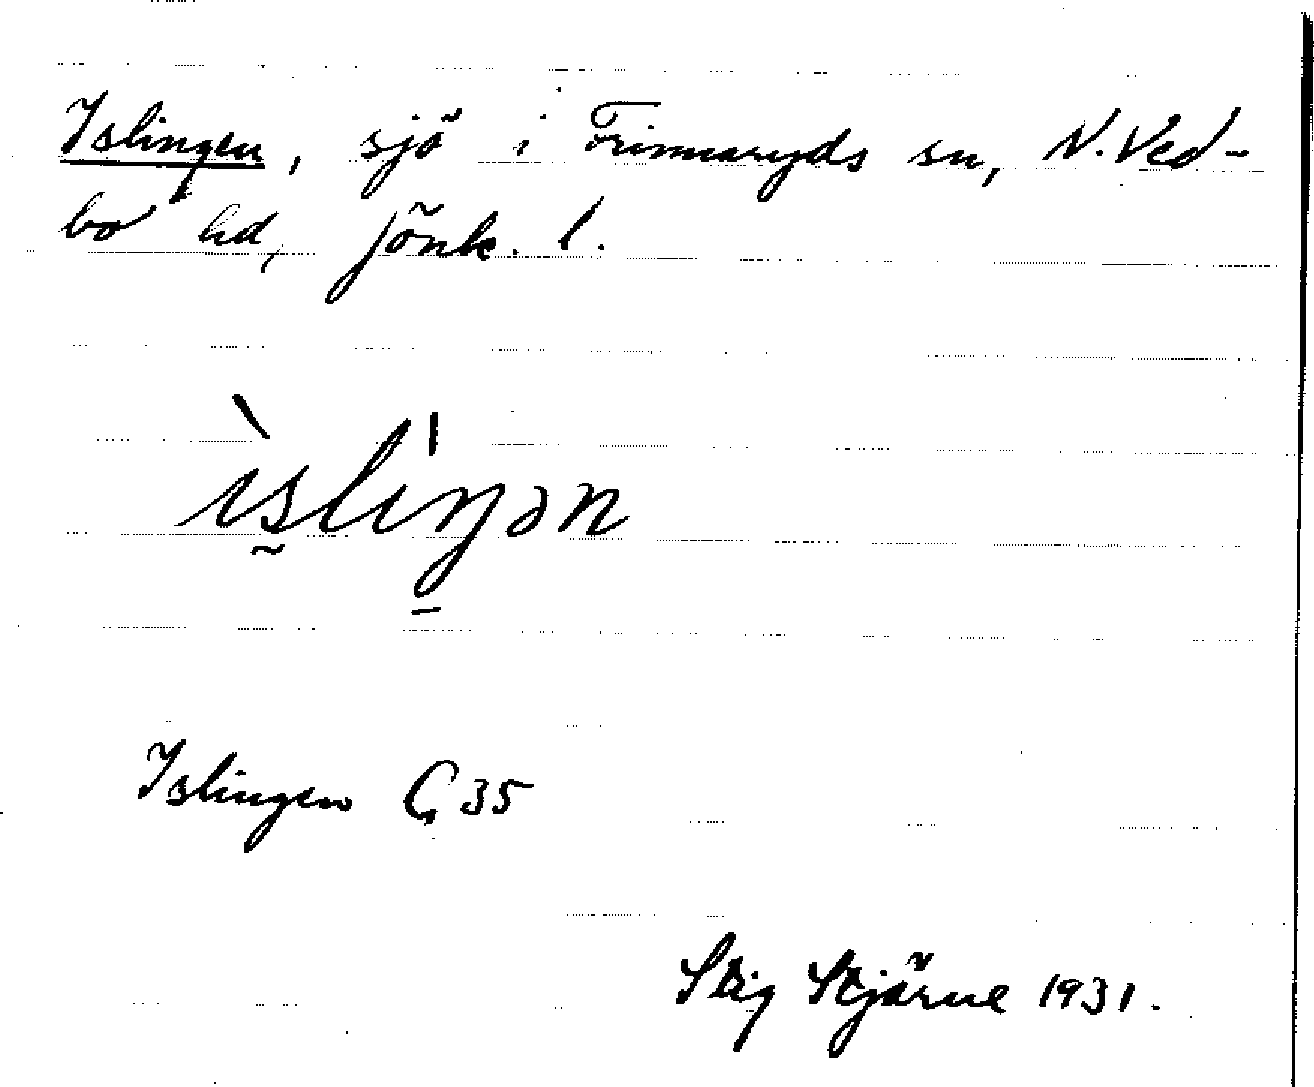 Islingen, sjö i Frinnaryds sn, N. Ved-
bo hd, Jönk. l.
ìslıŋən
Islingen G 35
Stig Stjärne 1931.